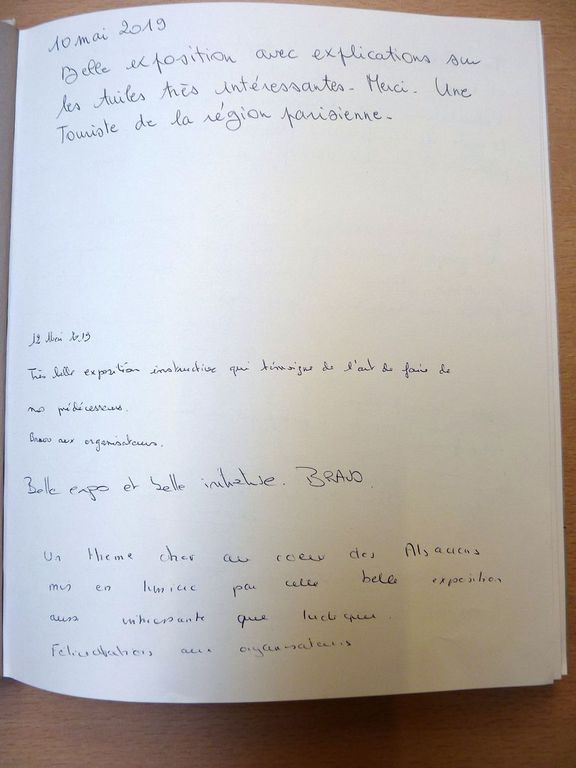 10 mai 2019
Belle exposition avec explications sur
les tuiles très intéressantes. Merci. Une
Touriste de la région parisienne.
12 Mai 2019
Très belle exposition instructive qui témoigne de l'art de faire de
nos prédécesseurs.
Bravo aux organisateurs.
Belle expo et belle initiative. BRAVO.
Un thème cher au coeur des Alsaciens
mis en lumière par cette belle exposition
aussi intéressante que ludique.
Félicitations aux organisateurs